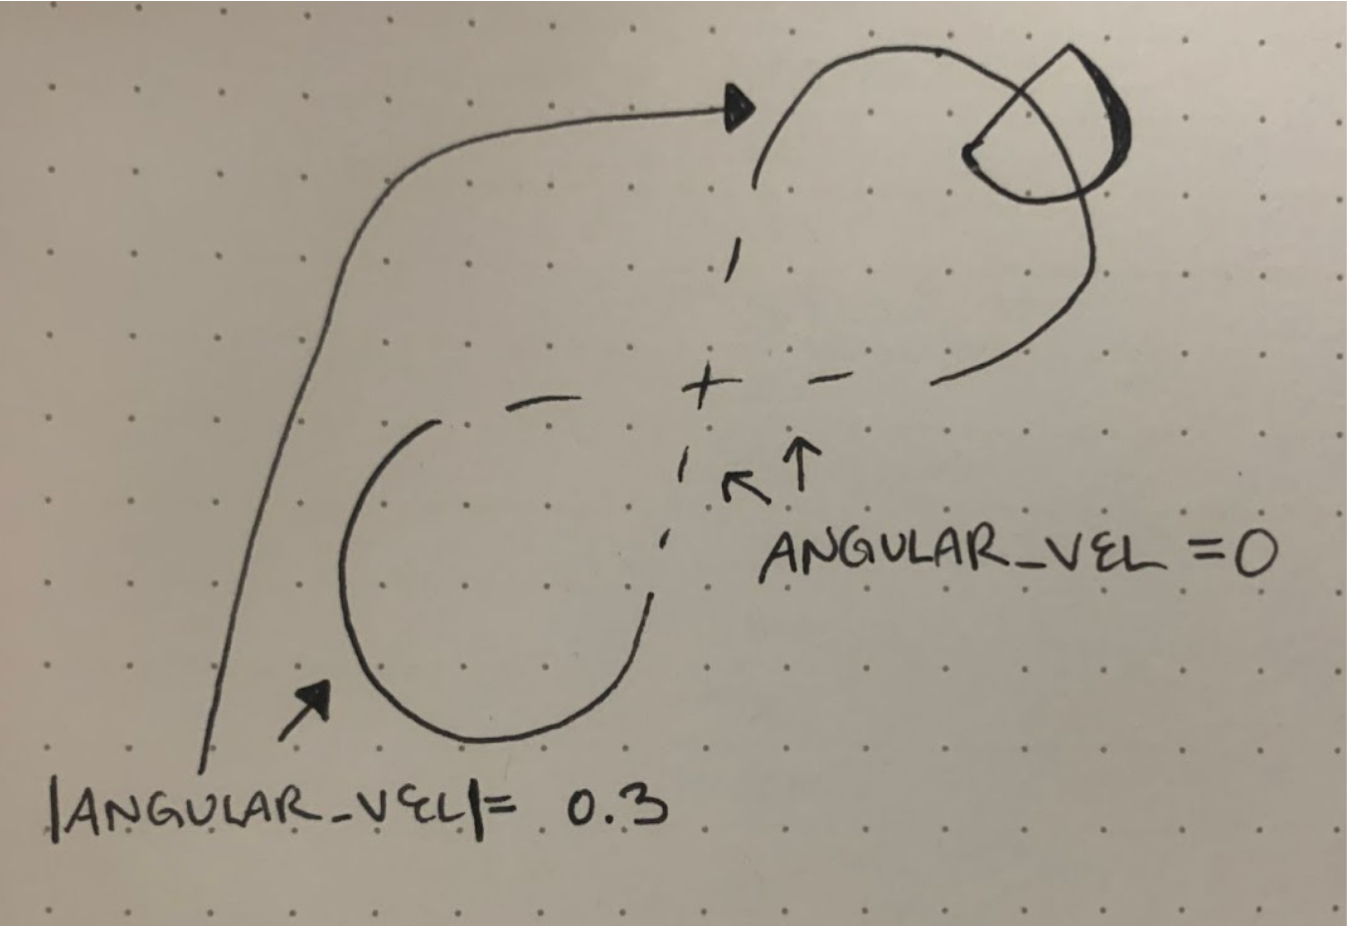 ANGULAR_VEL = 0
|ANGULAR_VEL| = 0.3